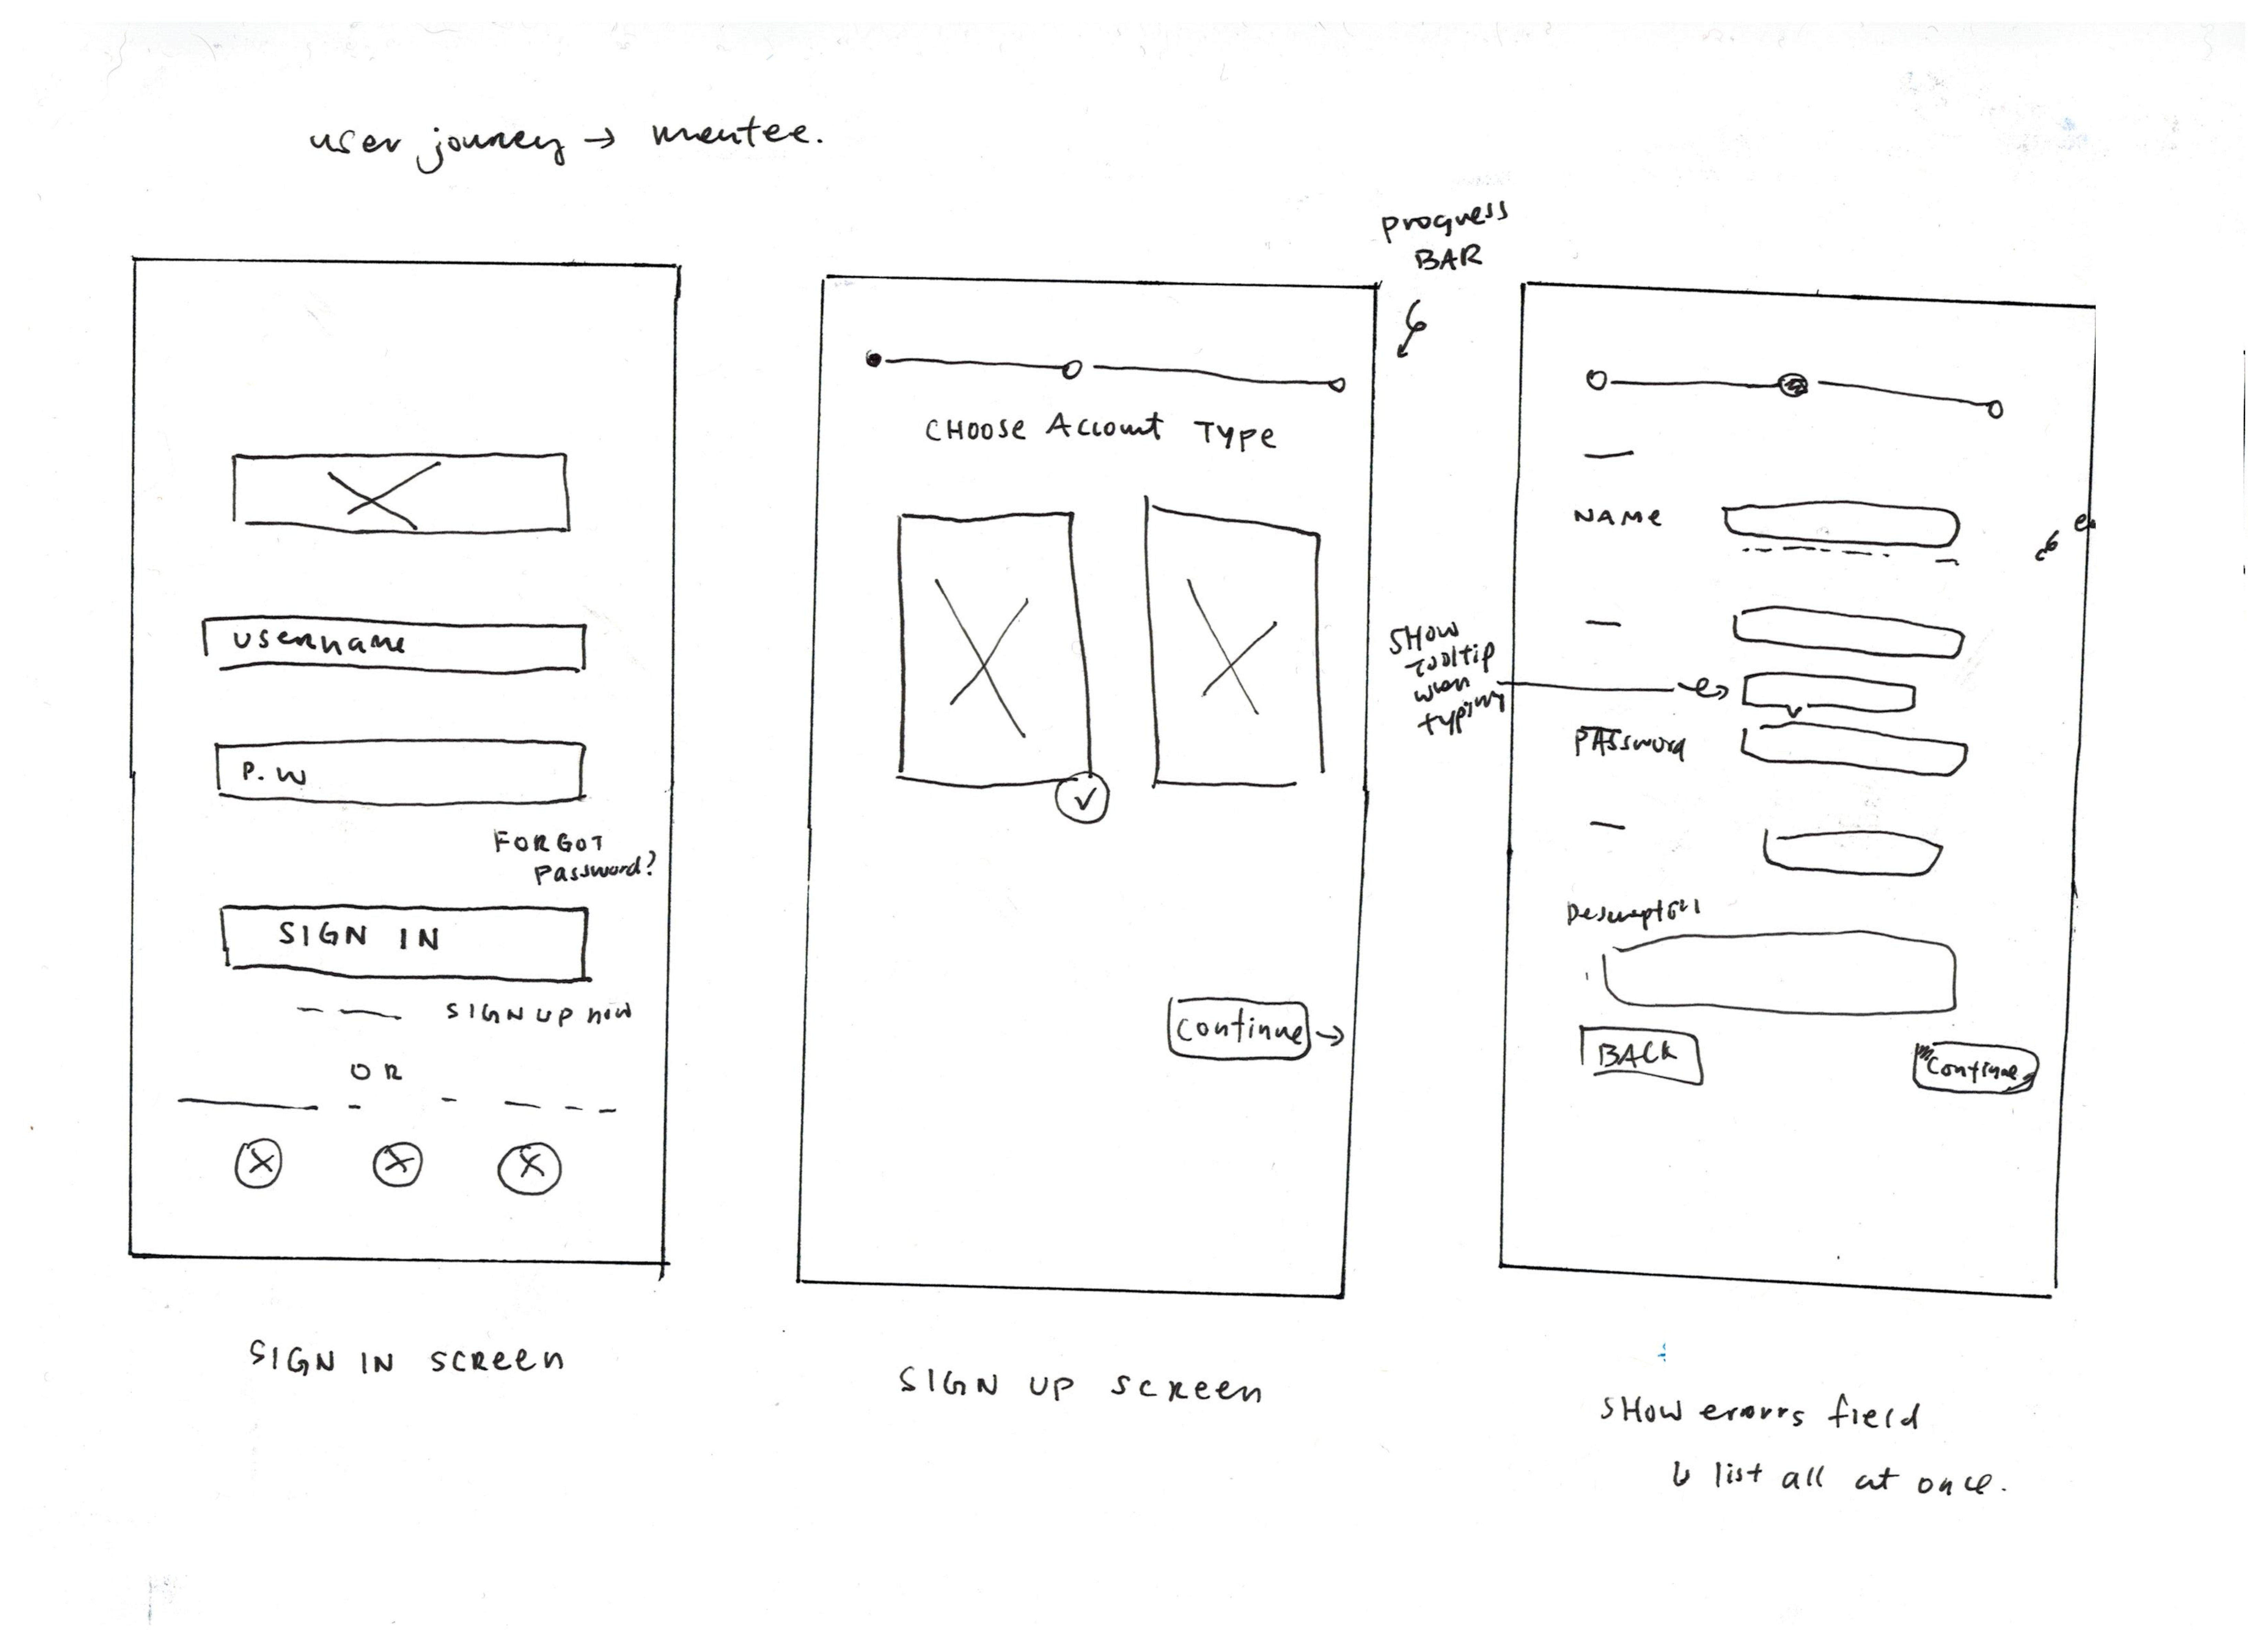 user journey → mentee.
Progress
BAR
username
P.W
FORGOT
Password?
SIGN IN
SIGN UP now
OR
SIGN IN SCREEN
CHOOSE ACCOUNT TYPE
✓
Continue →
SIGN UP SCREEN
SHOW
Tooltip
when
typing
NAME
PASSword
Description
BACK
Continue
SHOW errorrs field
↳ list all at once.